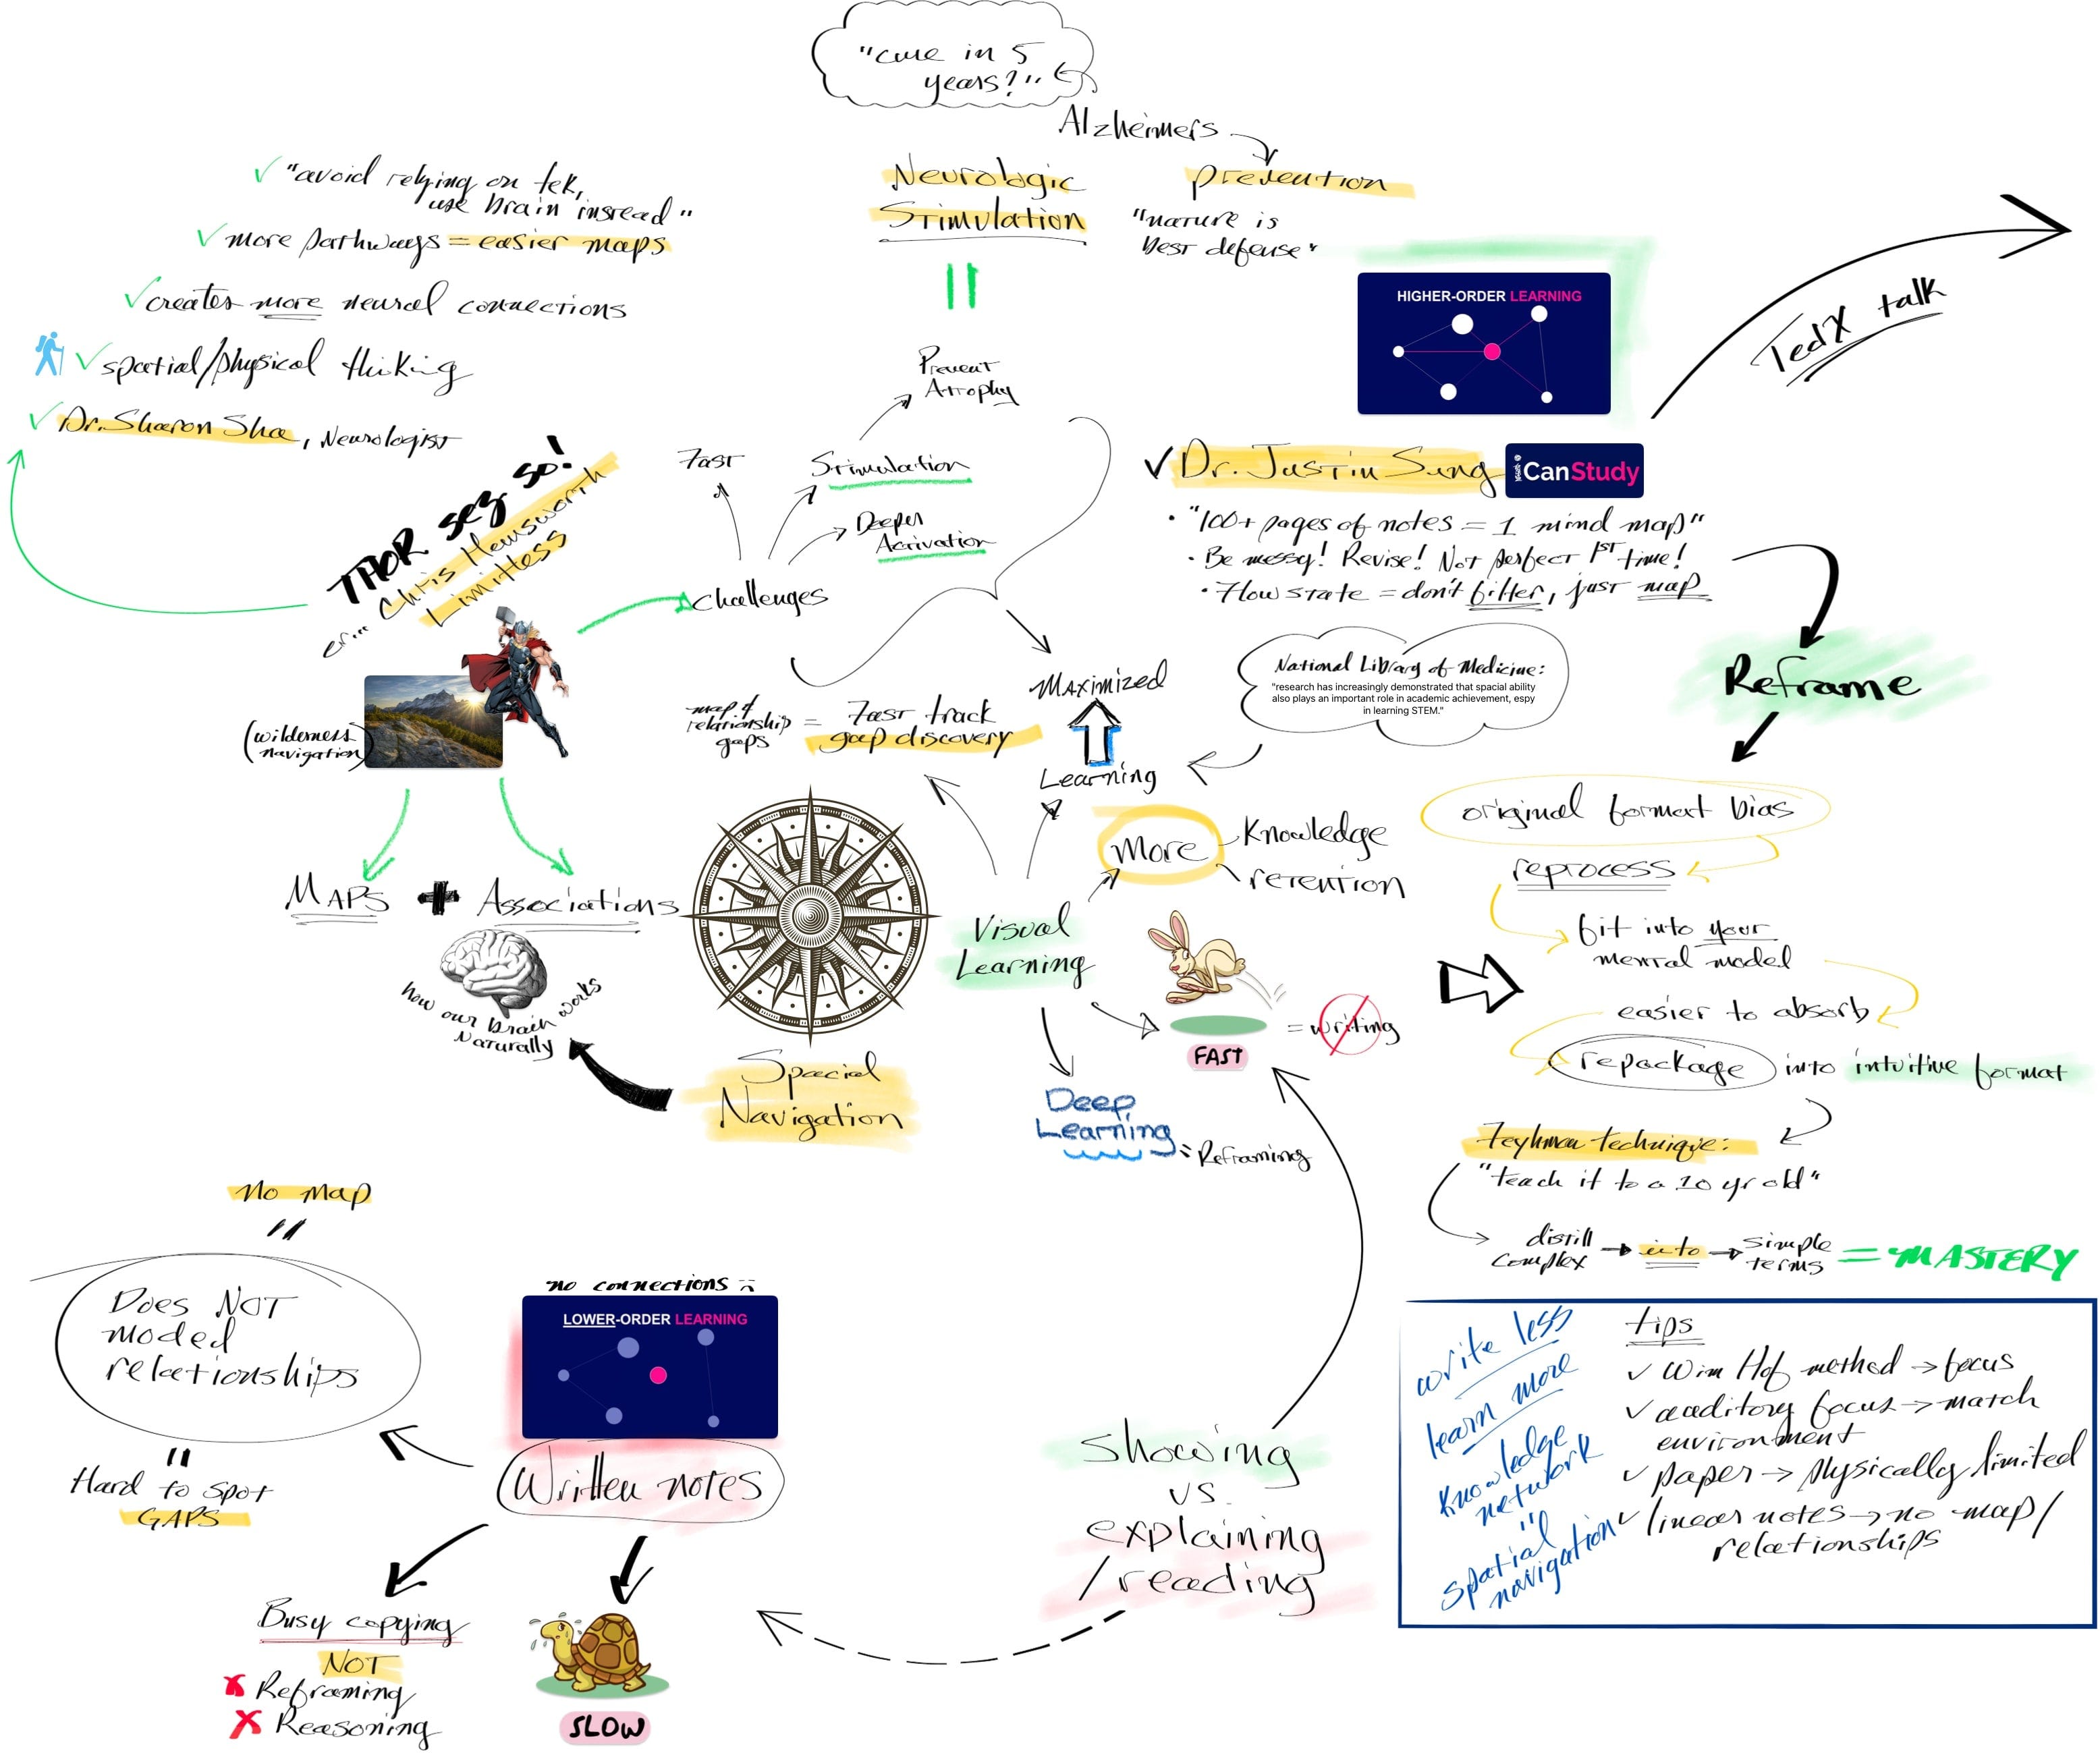 "cure in 5
years?"
Alzheimers
prevention
"nature is
best defense"
Neurologic
Stimulation
Prevent
Atrophy
"avoid relying on tek,
use brain instead"
more pathways = easier maps
creates more neural connections
spatial/physical thiking
Dr. Sharon Sha, Neurologist
THOR sez so!
er... Chris Hemsworth
Limitless
(wilderness
navigation)
Fast
Stimulation
Deeper
Activation
Challenges
HIGHER-ORDER LEARNING
TedX talk
Dr. Justin Sung
iCanStudy
"100+ pages of notes = 1 mind map"
Be messy! Revise! Not perfect 1st time!
Flow state = don't filter, just map
Reframe
National Library of Medicine:
"research has increasingly demonstrated that spacial ability
also plays an important role in academic achievement, espy
in learning STEM."
Maximized
Learning
map of
relationship
gaps
= Fast track
gap discovery
More
Knowledge
retention
Maps + Associations
how our brain works
Naturally
Spacial
Navigation
Visual
Learning
FAST
= writing
Deep
Learning
= Reframing
original format bias
reprocess
fit into your
mental model
easier to absorb
repackage into intuitive format
Feynman technique:
"teach it to a 10 yr old"
distill
complex
into
simple
terms
= MASTERY
no map
=
Does NOT
model
relationships
=
Hard to spot
GAPS
no connections
LOWER-ORDER LEARNING
Written notes
Busy copying
NOT
Reframing
Reasoning
SLOW
showing
vs.
explaining
/reading
write less
learn more
Knowledge
network
=
spatial
navigation
tips
Wim Hof method → focus
auditory focus → match
environment
paper → physically limited
linear notes → no map/
relationships